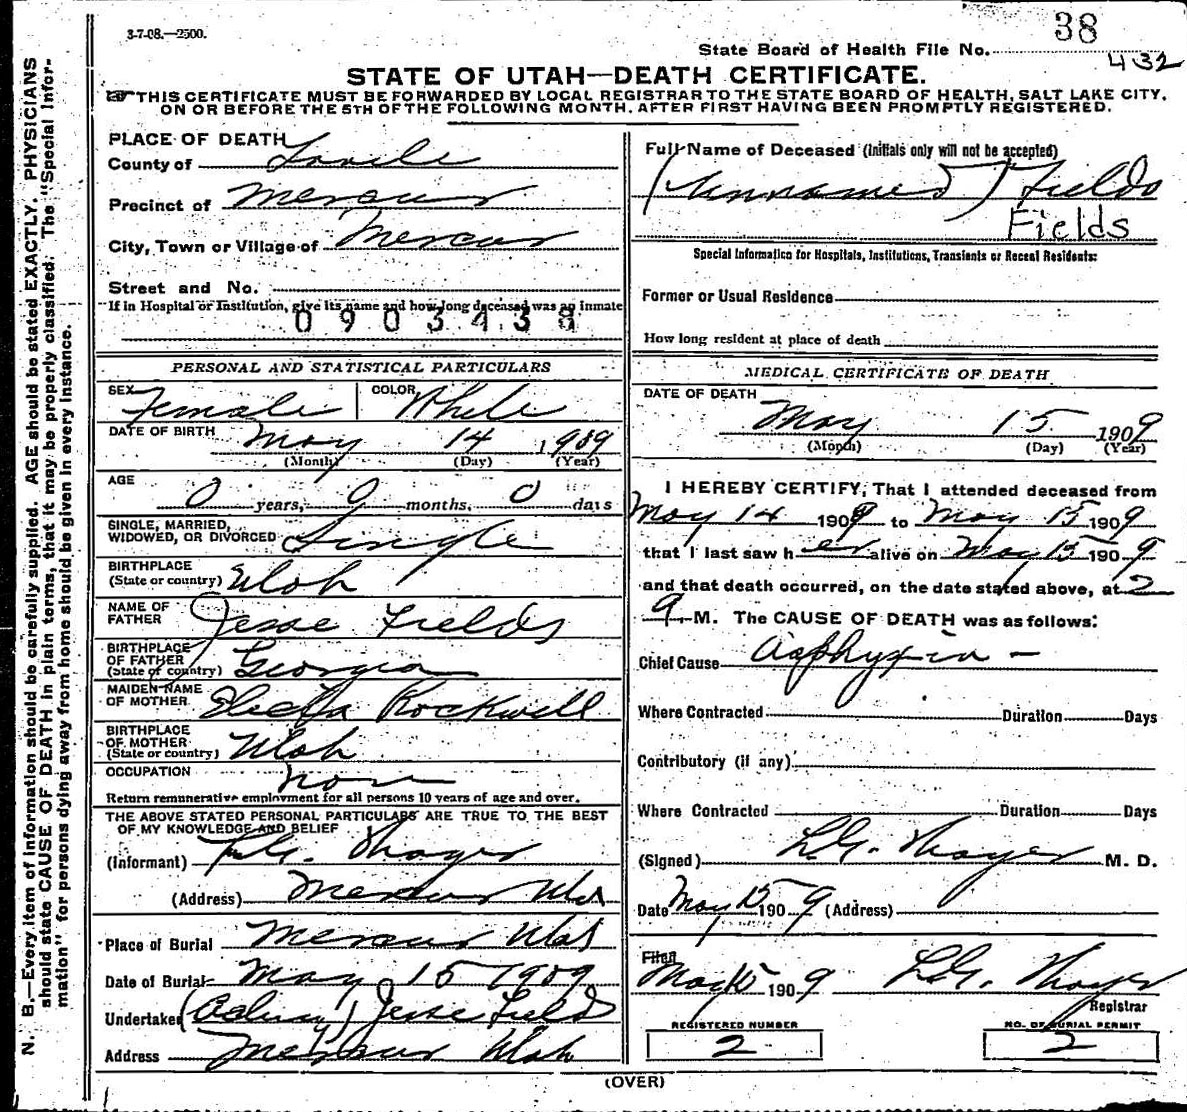 3-7-08.—2500.
38
State Board of Health File No.
432
STATE OF UTAH—DEATH CERTIFICATE.
THIS CERTIFICATE MUST BE FORWARDED BY LOCAL REGISTRAR TO THE STATE BOARD OF HEALTH, SALT LAKE CITY,
ON OR BEFORE THE 5TH OF THE FOLLOWING MONTH, AFTER FIRST HAVING BEEN PROMPTLY REGISTERED.
N. B.—Every item of information should be carefully supplied. AGE should be stated EXACTLY. PHYSICIANS
should state CAUSE OF DEATH in plain terms, that it may be properly classified. The "Special Infor-
mation" for persons dying away from home should be given in every instance.
PLACE OF DEATH
County of Tooele
Precinct of Mercur
City, Town or Village of Mercur
Street and No.
If in Hospital or Institution, give its name and how long deceased was an inmate
0903438
PERSONAL AND STATISTICAL PARTICULARS
SEX Female COLOR White
DATE OF BIRTH May 14 1909
(Month) (Day) (Year)
AGE
0 years, 0 months, 0 days
SINGLE, MARRIED,
WIDOWED, OR DIVORCED Single
BIRTHPLACE
(State or country) Utah
NAME OF
FATHER Jesse Fields
BIRTHPLACE
OF FATHER
(State or country) Georgia
MAIDEN NAME
OF MOTHER Rockwell
BIRTHPLACE
OF MOTHER
(State or country) Utah
OCCUPATION None
Return remunerative employment for all persons 10 years of age and over.
THE ABOVE STATED PERSONAL PARTICULARS ARE TRUE TO THE BEST
OF MY KNOWLEDGE AND BELIEF
(Informant) Thayer
(Address) Mercur Utah
Place of Burial Mercur Utah
Date of Burial May 15 1909
Undertaker Jesse Field
Address Mercur Utah
Full Name of Deceased (Initials only will not be accepted)
(Unnamed) Fields
Fields
Special Information for Hospitals, Institutions, Transients or Recent Residents:
Former or Usual Residence
How long resident at place of death
MEDICAL CERTIFICATE OF DEATH
DATE OF DEATH
May 15 1909
(Month) (Day) (Year)
I HEREBY CERTIFY, That I attended deceased from
May 14 1909 to May 15 1909
that I last saw her alive on May 15 1909
and that death occurred, on the date stated above, at 2
M. The CAUSE OF DEATH was as follows:
Chief Cause Asphyxia -
Where Contracted Duration Days
Contributory (if any)
Where Contracted Duration Days
(Signed) L.G. Thayer M. D.
Date May 15 1909 (Address)
Filed
May 15 1909 L.G. Thayer
Registrar
REGISTERED NUMBER
2
NO. OF BURIAL PERMIT
2
(OVER)